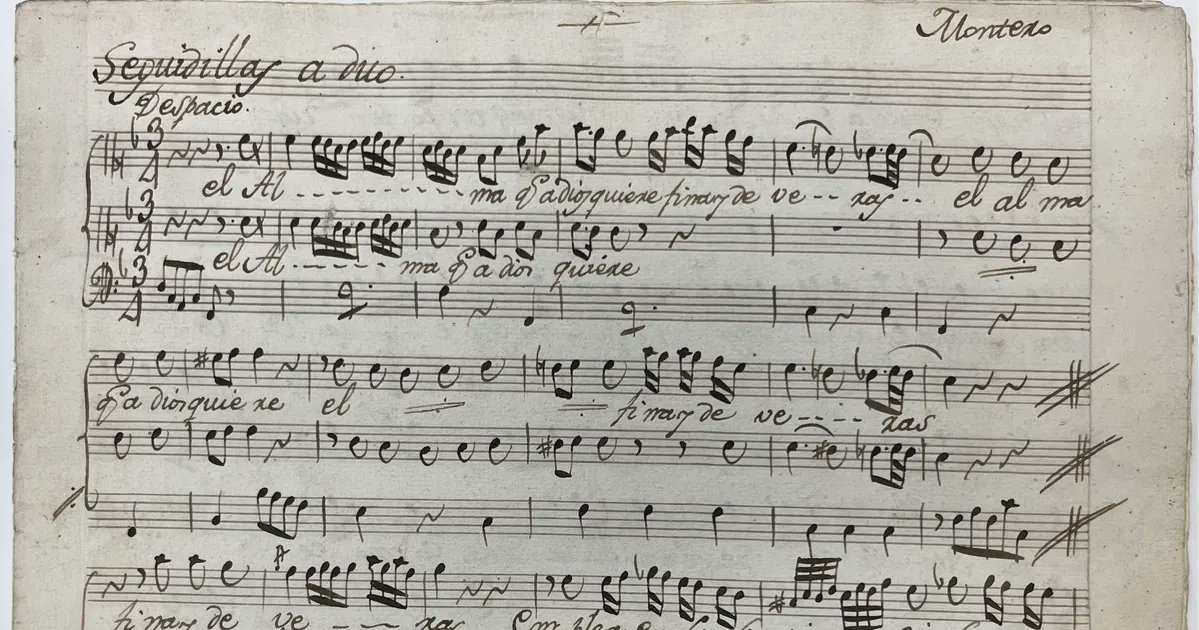 Montero
Seguidillas a duo.
Despacio.
3 4
el Al - - - - - - - - - - ma q. a dios quiere finas de ve - - ras - - el al ma
3 4
el Al - - - - - ma q. a dios quiere
3 4
q. a dios quie re el finas de ve - - - - ras
finas de ve - - - ras